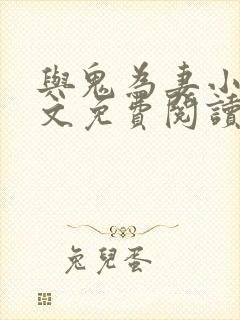 與鬼為妻小
文免費閱讀
兔兒蛋